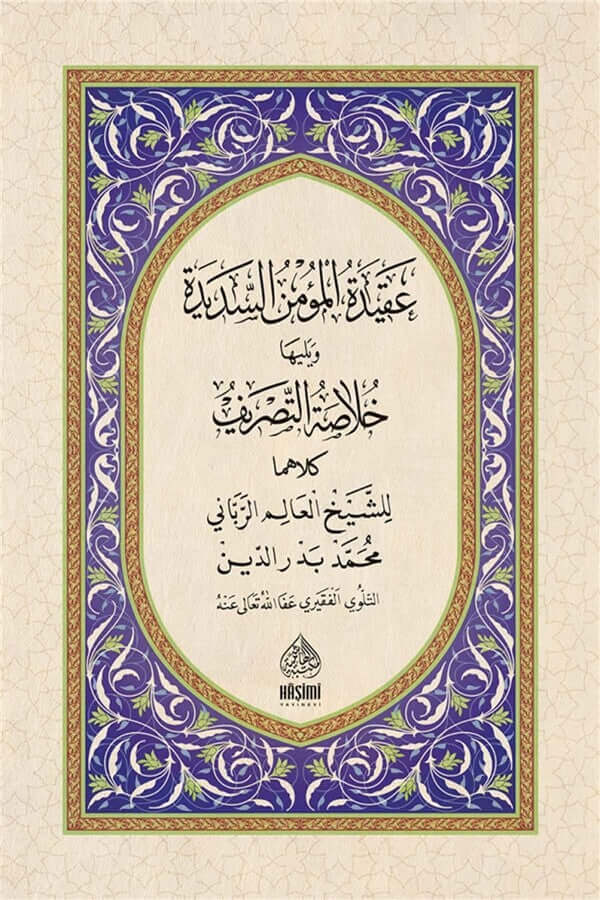 عَقِيدَةُ الْمُؤْمِنِ السَّدِيدَةُ
وَيَلِيهَا
خُلَاصَةُ التَّصْرِيفِ
كلاهما
لِلشَّيْخِ الْعَالِمِ الرَّبَّانِي
مُحَمَّدْ بَدْرِ الدِّينِ
التَّلَّوِي الْفَقِيرِي عَفَا اللهُ تَعَالَى عَنْهُ
HÂŞİMİ
YAYINEVI